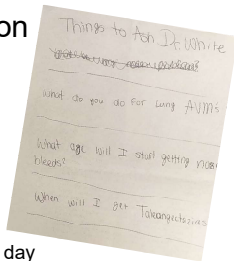 on
Things to Ask Dr. White
What do you do for Lung AVMs
What age will I start getting nose
bleeds?
When will I get Telangectasias
day